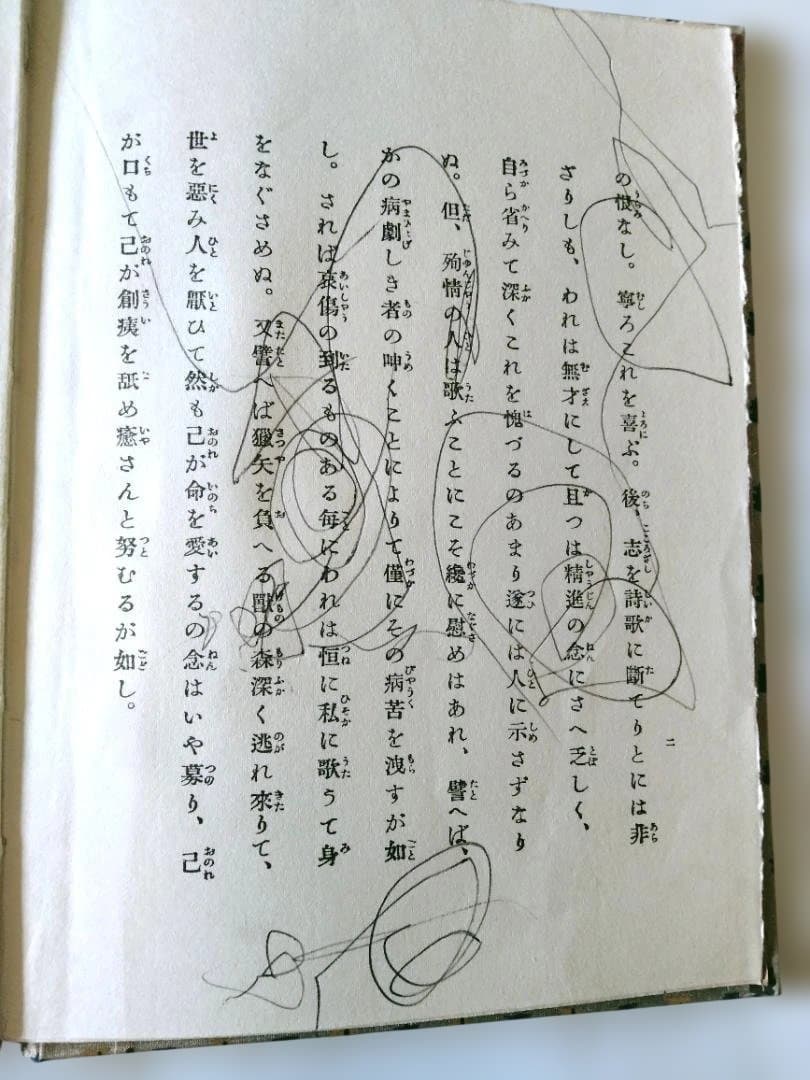 の恨なし。寧ろこれを喜ぶ。後、志を詩歌に斷てりとには非
ざりしも、われは無才にして且つは精進の念にさへ乏しく、
自ら省みて深くこれを愧づるのあまり遂には人に示さずなり
ぬ。但、殉情の人は歌ふことにこそ纔に慰めはあれ、譬へば、
かの病劇しき者の呻くことによりて僅にその病苦を洩すが如
し。されば哀傷の到るものある毎にわれは恒に私に歌うて身
をなぐさめぬ。又譬へば獵矢を負へる獸の森深く逃れ來りて、
世を惡み人を厭ひて然も己が命を愛するの念はいや募り、己
が口もて己が創痍を舐め癒さんと努むるが如し。
二